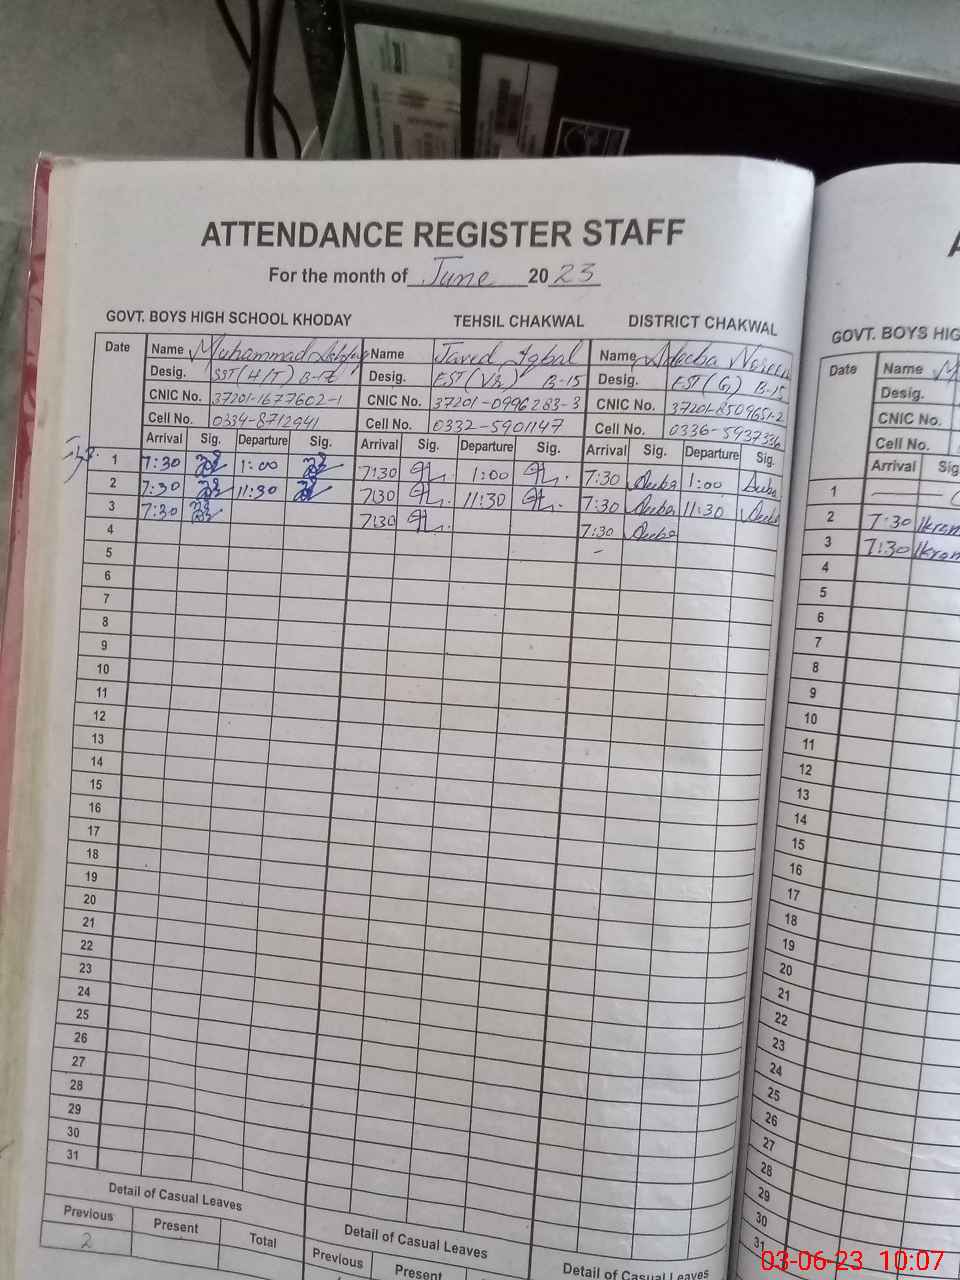 ATTENDANCE REGISTER STAFF
For the month of June 2023
GOVT. BOYS HIGH SCHOOL KHODAY TEHSIL CHAKWAL DISTRICT CHAKWAL
Date Name Muhammad Name Javed Iqbal Name Adeeba Noreen
Desig. SST (H/T) B-17 Desig. EST (V.S) B-15 Desig. EST (G) B-15
CNIC No. 37201-1677602-1 CNIC No. 37201-0996283-3 CNIC No. 37201-8509651-2
Cell No. 0334-8712941 Cell No. 0332-5901147 Cell No. 0336-5937336
Arrival Sig. Departure Sig. Arrival Sig. Departure Sig. Arrival Sig. Departure Sig.
1 7:30 1:00 7:30 1:00 7:30 1:00
2 7:30 11:30 7:30 11:30 7:30 11:30
3 7:30 7:30 7:30
4
5
6
7
8
9
10
11
12
13
14
15
16
17
18
19
20
21
22
23
24
25
26
27
28
29
30
31
Detail of Casual Leaves Detail of Casual Leaves Detail of Casual Leaves
Previous Present Total Previous Present
2
GOVT. BOYS HIG
Date Name M
Desig.
CNIC No.
Cell No.
Arrival Sig
1
2 7:30 Ikram
3 7:30 Ikram
4
5
6
7
8
9
10
11
12
13
14
15
16
17
18
19
20
21
22
23
24
25
26
27
28
29
30
31
03-06-23 10:07